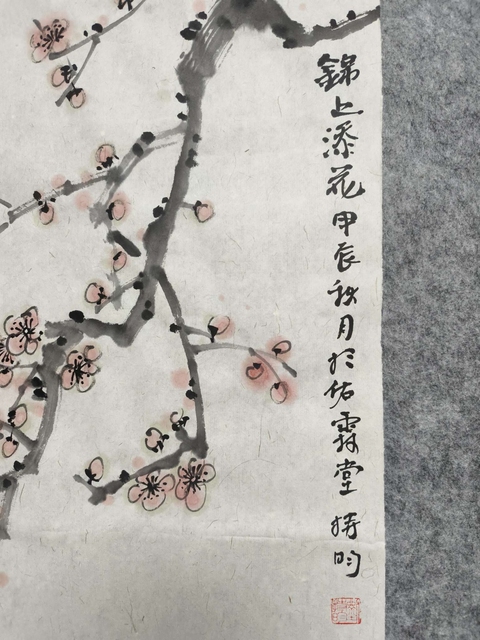 錦上添花甲辰秋月於佑霖堂